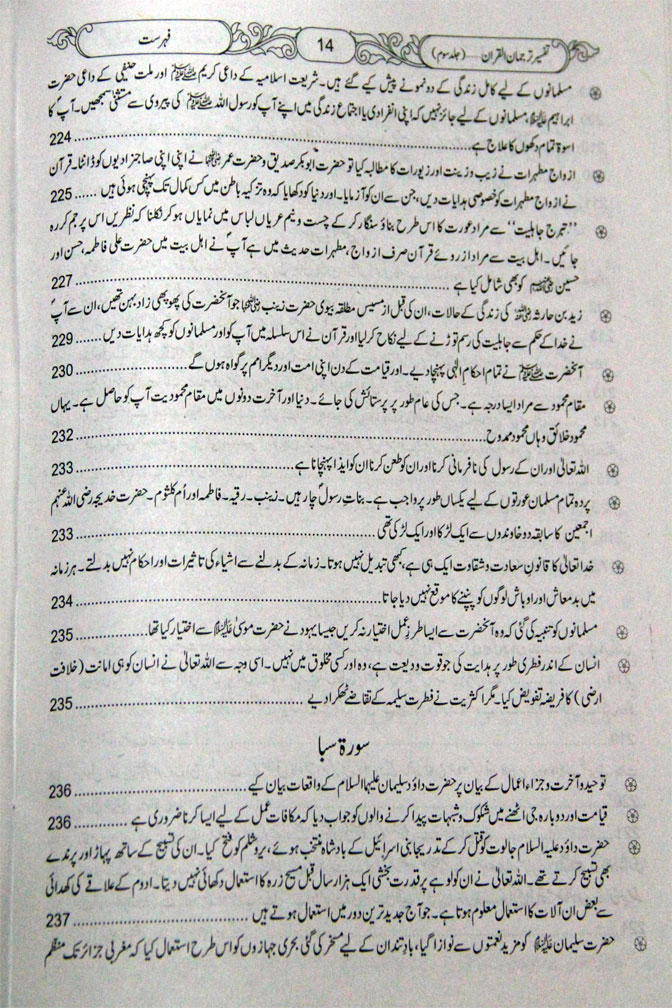 تفسیر ترجمان القرآن (جلد سوم)
14
فہرست
مسلمانوں کے لیے کامل زندگی کے دو نمونے پیش کیے گئے ہیں۔ شریعت اسلامیہ کے داعی کریم ﷺ اور ملت حنیفی کے داعی حضرت
ابراہیم علیہ السلام، مسلمانوں کے لیے جائز نہیں کہ اپنی انفرادی یا اجتماعی زندگی میں اپنے آپ کو رسول اللہ ﷺ کی پیروی سے مستثنیٰ سمجھیں۔ آپؐ کا
اسوۂ تمام دکھوں کا علاج ہے 224
ازواج مطہرات نے زیب و زینت اور زیورات کا مطالبہ کیا تو حضرت ابوبکر صدیق و حضرت عمر رضی اللہ عنہما نے اپنی اپنی صاجنرادیوں کو ڈانٹا۔ قرآن
نے ازواج مطہرات کو خصوصی ہدایات دیں، جن سے ان کو آزمایا۔ اور دنیا کو دکھایا کہ وہ تزکیہ باطن میں کس کمال تک پہنچی ہوئی ہیں 225
”تبرج جاہلیت“ سے مراد عورت کا اس طرح بناؤ سنگار کر کے چست و نیم عریاں لباس میں نمایاں ہو کر نکلنا کہ نظریں اس پر جم کر رہ
جائیں۔ اہل بیت سے مراد از روئے قرآن صرف ازواج، مطہرات حدیث میں ہے آپؐ نے اہل بیت میں حضرت علی فاطمہ، حسن اور
حسین رضی اللہ عنہم کو بھی شامل کیا ہے 227
زید بن حارثہ رضی اللہ عنہ کی زندگی کے حالات، ان کی قبل از مسیس مطلقہ بیوی حضرت زینب رضی اللہ عنہا جو آنحضرت کی پھوپھی زاد بہن تھیں، ان سے آپؐ
نے خدا کے حکم سے جاہلیت کی رسم توڑنے کے لیے نکاح کر لیا اور قرآن نے اس سلسلہ میں آپ کو اور مسلمانوں کو کچھ ہدایات دیں 229
آنحضرت ﷺ نے تمام احکام الٰہی پہنچا دیے۔ اور قیامت کے دن اپنی امت اور دیگر امم پر گواہ ہوں گے 230
مقام محمود سے مراد ایسا درجہ ہے۔ جس کی عام طور پر پرستائش کی جائے۔ دنیا اور آخرت دونوں میں مقام محمودیت آپ کو حاصل ہے۔ یہاں
محمود خلائق و ہاں محمود ممدوح 232
اللہ تعالیٰ اور ان کے رسول کی نافرمانی کرنا اور ان کو طعن کرنا ان کو ایذا پہنچانا ہے 233
پردہ تمام مسلمان عورتوں کے لیے یکساں طور پر واجب ہے۔ بنات رسولؐ چار ہیں۔ زینب۔ رقیہ۔ فاطمہ اور اُم کلثوم۔ حضرت خدیجہ رضی اللہ عنہم
اجمعین کا سابقہ دو خاوندوں سے ایک لڑکا اور ایک لڑکی تھی 233
خدا تعالیٰ کا قانون سعادت و شقاوت ایک ہی ہے، کبھی تبدیل نہیں ہوتا۔ زمانہ کے بدلنے سے اشیاء کی تاثیرات اور احکام نہیں بدلتے۔ ہر زمانہ
میں بدمعاش اور اوباش لوگوں کو پنپنے کا موقع نہیں دیا جاتا 234
مسلمانوں کو تنبیہ کی گئی کہ وہ آنحضرت سے ایسا طرز عمل اختیار نہ کریں جیسا یہود نے حضرت موسیٰ علیہ السلام سے اختیار کیا تھا 235
انسان کے اندر فطری طور پر ہدایت کی جو قوت ودیعت ہے، وہ اور کسی مخلوق میں نہیں۔ اسی وجہ سے اللہ تعالیٰ نے انسان کو ہی امانت (خلافت
ارضی) کا فریضہ تفویض کیا۔ مگر اکثریت نے فطرت سلیمہ کے تقاضے ٹھکرا دیے 235
سورۃ سبا
توحید و آخرت و جزاء اعمال کے بیان پر حضرت داؤد سلیمان علیہما السلام کے واقعات بیان کیے 236
قیامت اور دوبارہ جی اٹھنے میں شکوک و شبہات پیدا کرنے والوں کو جواب دیا کہ مکافات عمل کے لیے ایسا کرنا ضروری ہے 236
حضرت داؤد علیہ السلام جالوت کو قتل کر کے تدریجا بنی اسرائیل کے بادشاہ منتخب ہوئے، یروشلم کو فتح کیا۔ ان کی تسبیح کے ساتھ پہاڑ اور پرندے
بھی تسبیح کرتے تھے۔ اللہ تعالیٰ نے ان کو لوہے پر قدرت بخشی ایک ہزار سال قبل مسیح زرہ کا استعمال دکھائی نہیں دیتا۔ ادوم کے علاقے کی کھدائی
سے بعض ان آلات کا استعمال معلوم ہوتا ہے۔ جو آج جدید ترین دور میں استعمال ہوتے ہیں 237
حضرت سلیمان علیہ السلام کو مزید نعمتوں سے نوازا گیا، باد تند ان کے لیے مسخر کی گئی بحری جہازوں کو اس طرح استعمال کیا کہ مغربی جزائر تک منظم